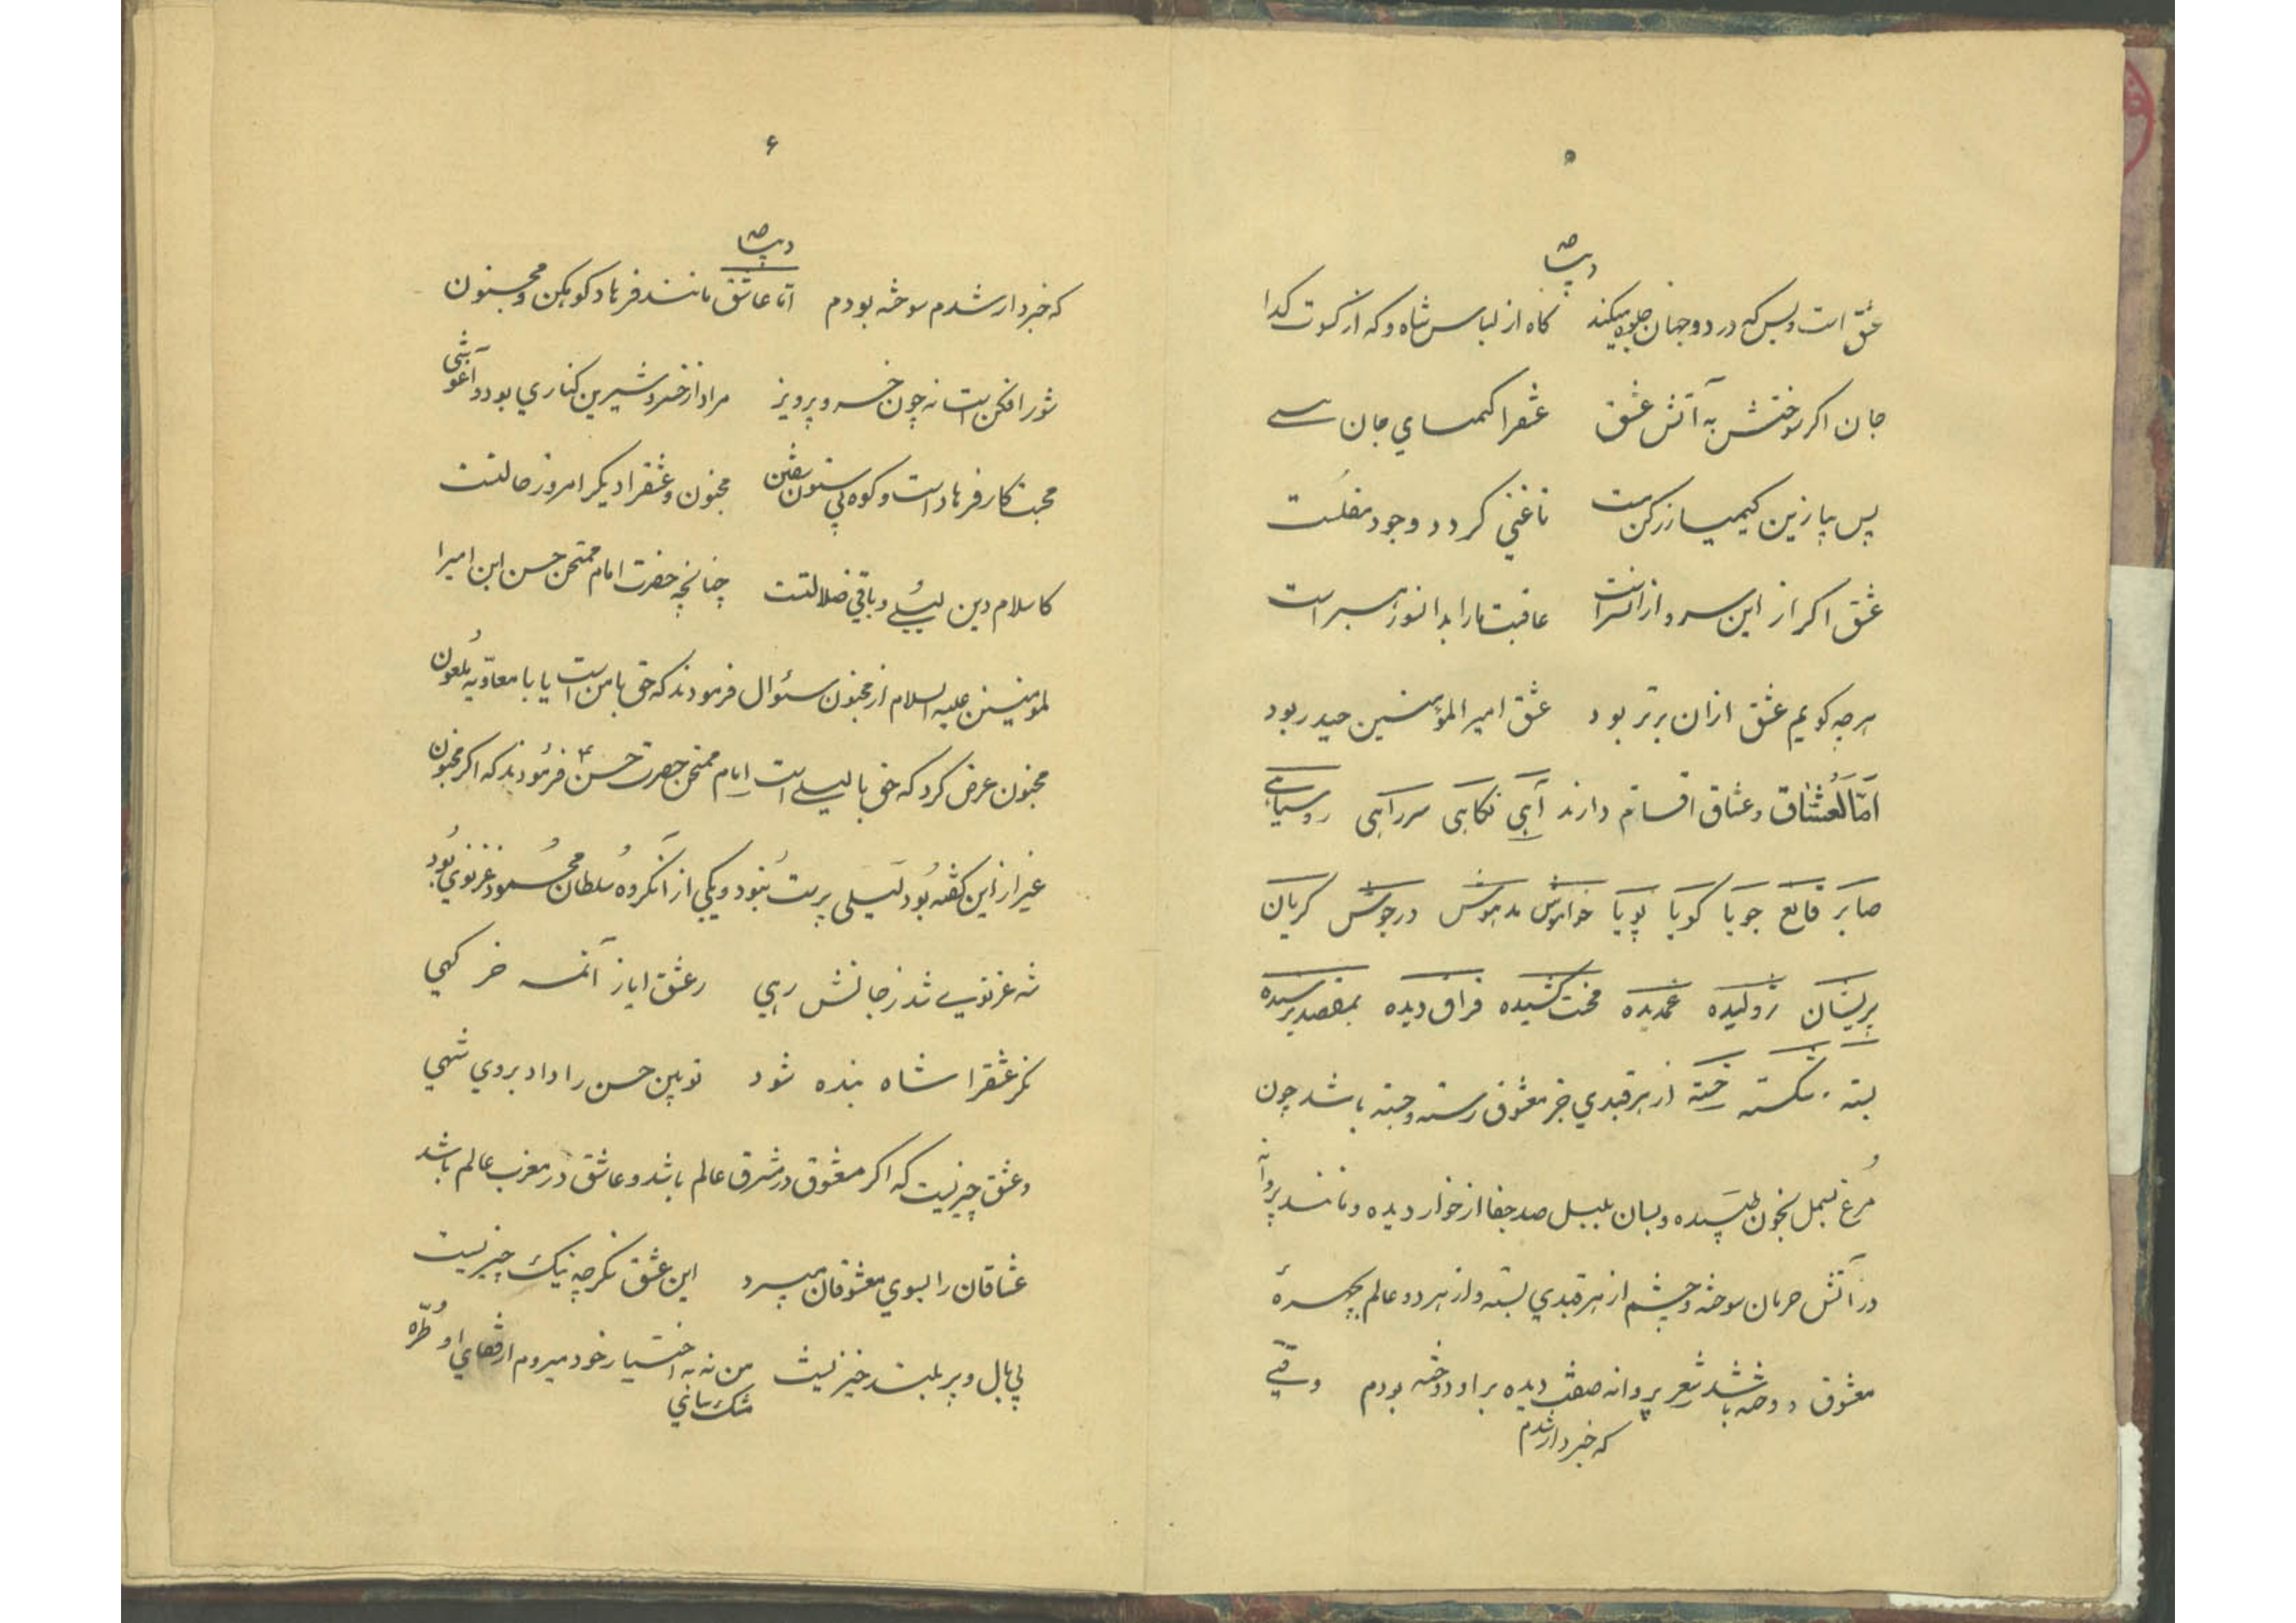 ۵
دیباچه
عشق است و بس که در دو جهان جلوه میکند کاه از لباس شاه و که از کسوت کدا
جان اکر سوختش به آتش عشق عشقرا کیمیای جان
پس بیا زین کیمیا زر کن مست تا غنی کردد وجود مفلست
عشق اکر از این سر و از آن سراست عاقبت ما را بدانور
هرچه کویم عشق ازان برتر بود عشق امیر المؤمنین حیدر بود
امّا العشّاق وعشاق اقسام دارند آهی نکاهی سرراهی روسیاهی
صابر قانع جویا کویا پویا خواموش مدهوش درجوش کریان
پریشان ژولیده غمدیده محنت کشیده فراق دیده بمقصد نرسیده
بسته شکسته خسته از هر قیدی جز معشوق رسته و جسته باشد چون
مُرغ بسمل بخون طپیده و بسان بلبل صد جفا از خوار دیده و مانند پروانه
در آتش حرمان سوخته و چشم از هر قیدی بسته و از هر دو عالم بچهرهٔ
معشوق دوخته باشد شعر پروانه صفت دیده بر او دوخته بودم وقتی
که خبردار شدم
۶
دیباچه
که خبردار شدم سوخته بودم امّا عاشق مانند فرهاد کوهکن و مجنون
شور افکن است نه چون خسرو پرویز مراد از خسرو شیرین کناری بود و آغوشی
محبت کار فرهاد است و کوه بی ستون سفتن مجنون و عشقرا دیکر امروز حالتست
کاسلام دین لیلی و باقی ضلالتست چنانچه حضرت امام ممتحن حسن ابن امیرا
لمومنین علیه السلام از مجنون سئوال فرمودند که حق با من است یا با معاویه ملعون
مجنون عرض کرد که حق با لیلی است امام ممتحن حضرت حسن ع فرمودند که اکر مجنون
غیر از این کفته بُود لَیلی پرست نبُود و یکی از آنکروه سُلطان محمود غزنوی بُود
شه غزنوی شد ز جانش رهی ز عشق ایاز خر کهی
نکر عشقرا شاه بنده شود تو بین حسن را داد بروی شهی
و عشق چیزیست که اکر معشوق در مشرق عالم باشد و عاشق در مغرب عالم باشد
عشاقان را بسوی معشوقان میبرد این عشق نکر چه نیک چیزیست
بی بال و پر بلند خیزیست من نه به اختیار خود میروم از قفای او طُرّه
مشک سائی